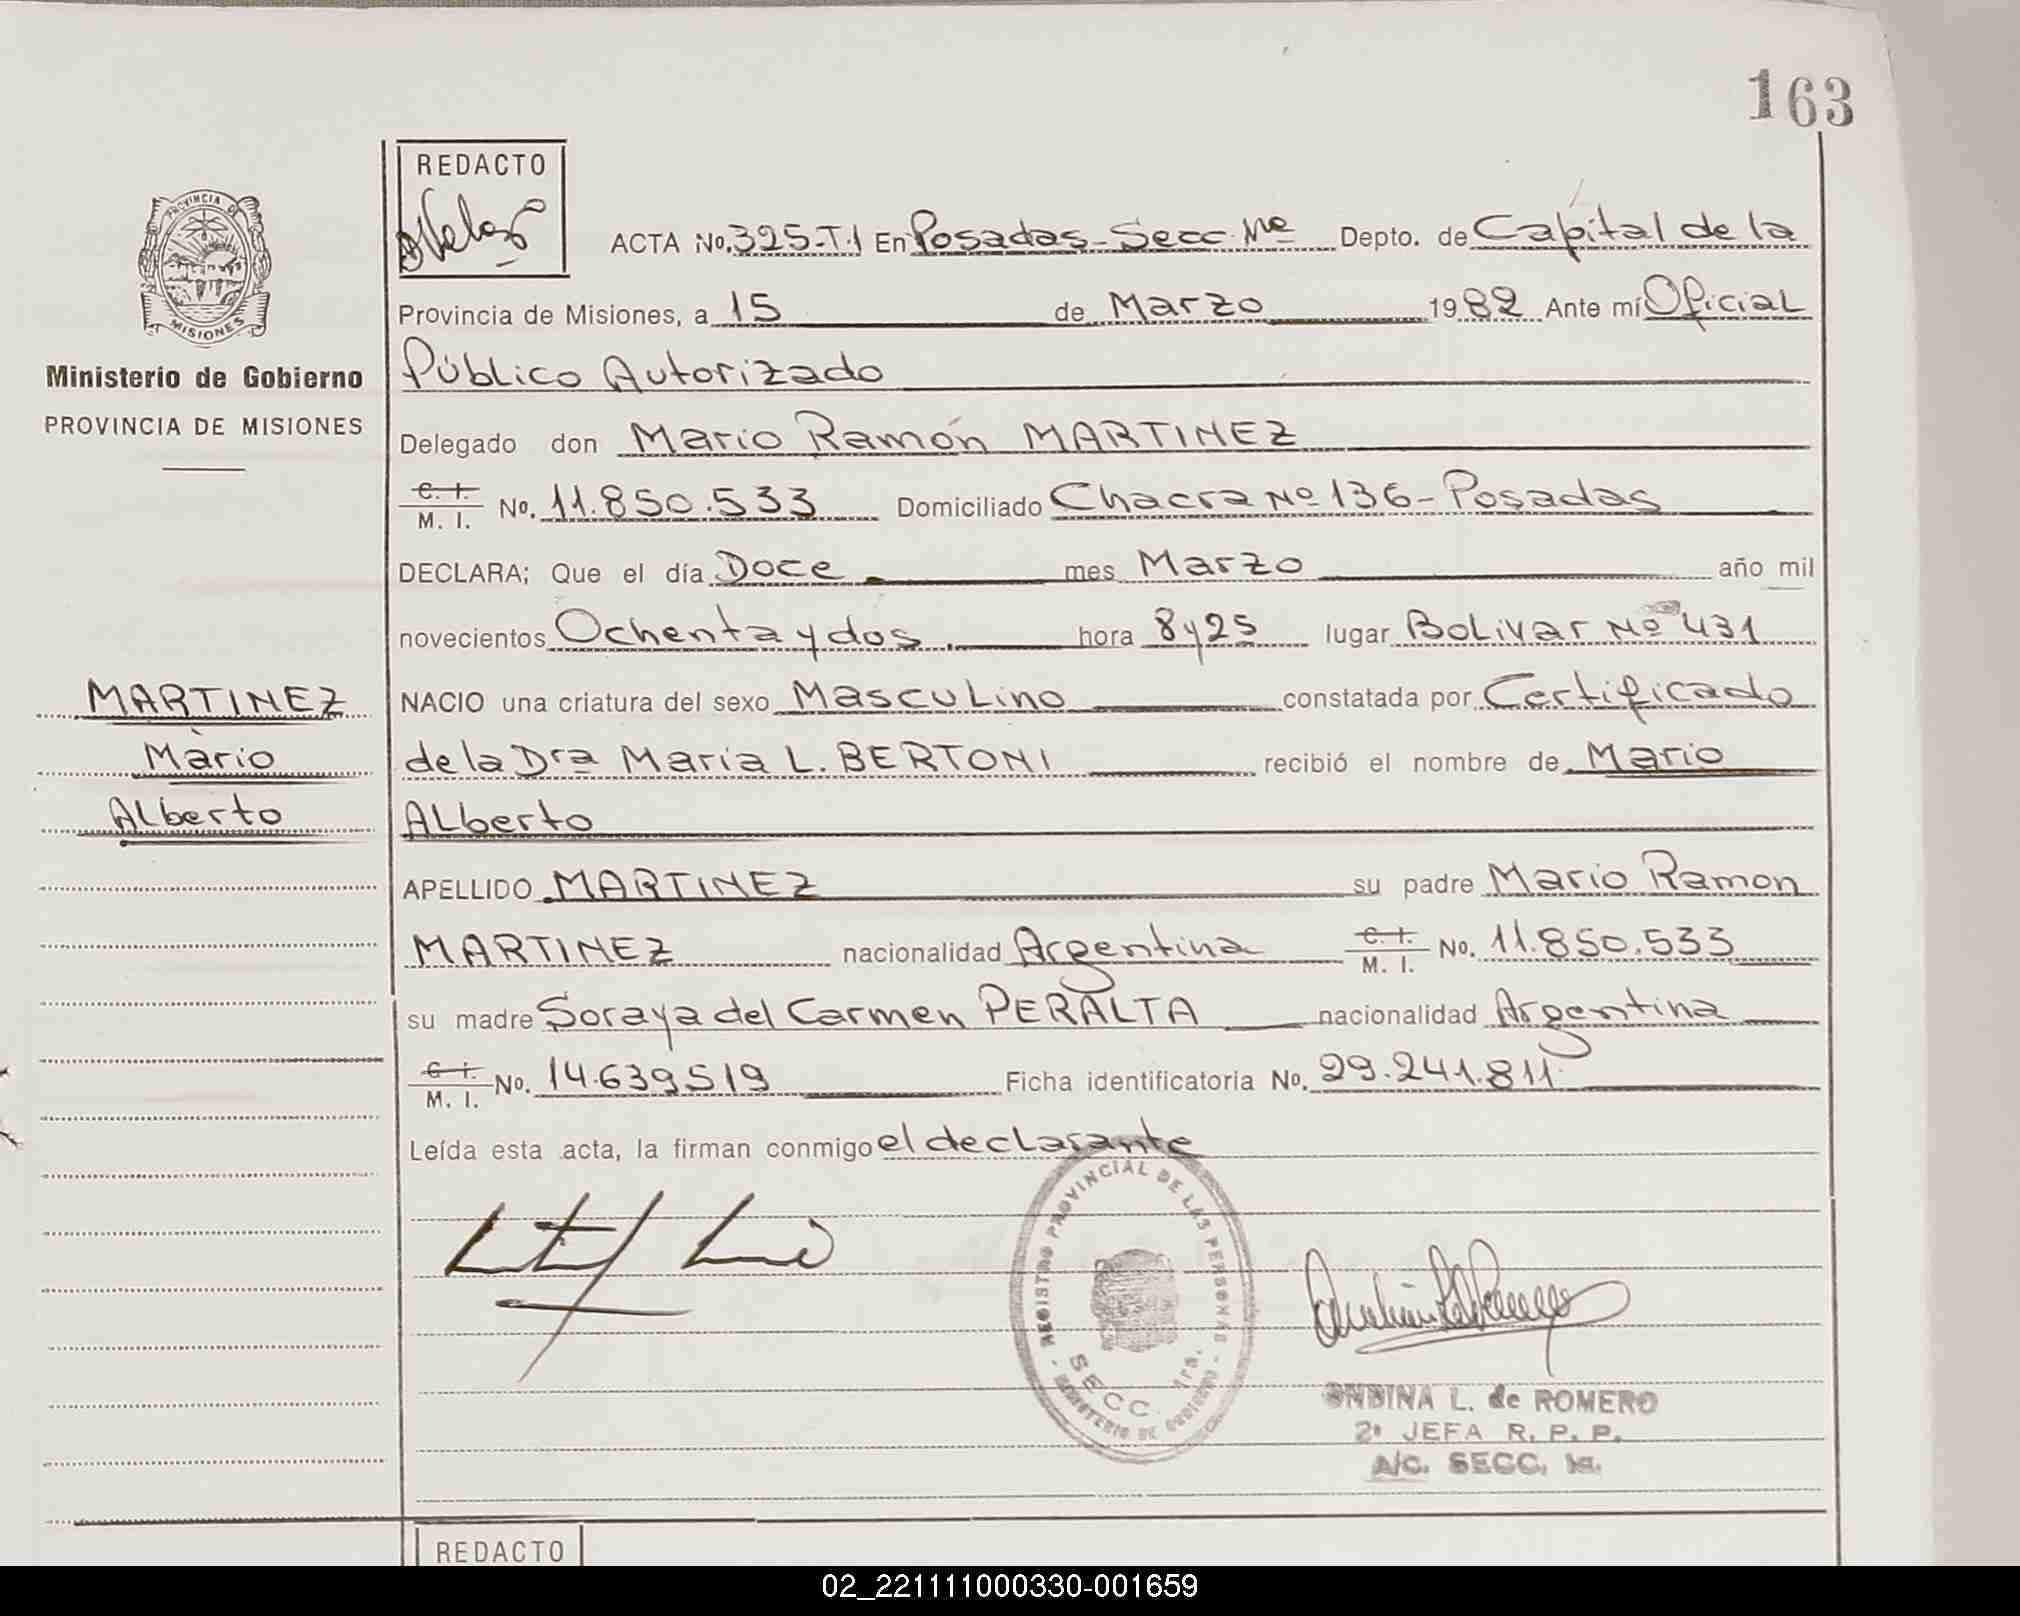 163
REDACTO
PROVINCIA DE
MISIONES
Ministerio de Gobierno
PROVINCIA DE MISIONES
ACTA No. 325-T.I En Posadas-Secc. 1ª Depto. de Capital de la
Provincia de Misiones, a 15 de Marzo 1982 Ante mí Oficial
Público Autorizado
Delegado don Mario Ramón MARTINEZ
C. I.
M. I. No. 11.850.533 Domiciliado Chacra Nº 136-Posadas
DECLARA; Que el día Doce mes Marzo año mil
novecientos Ochenta y dos hora 8 y 25 lugar Bolivar Nº 431
MARTINEZ
Mario
Alberto
NACIO una criatura del sexo Masculino constatada por Certificado
de la Dra Maria L. BERTONI recibió el nombre de Mario
Alberto
APELLIDO MARTINEZ su padre Mario Ramon
MARTINEZ nacionalidad Argentina C. I.
M. I. No. 11.850.533
su madre Soraya del Carmen PERALTA nacionalidad Argentina
C. I.
M. I. No. 14.639519 Ficha identificatoria No. 29.241.811
Leída esta acta, la firman conmigo el declarante
REGISTRO PROVINCIAL DE LAS PERSONAS
SECC. 1ra.
MINISTERIO DE GOBIERNO
ONDINA L. de ROMERO
2ª JEFA R. P. P.
A/C. SECC. 1a.
REDACTO
02_221111000330-001659